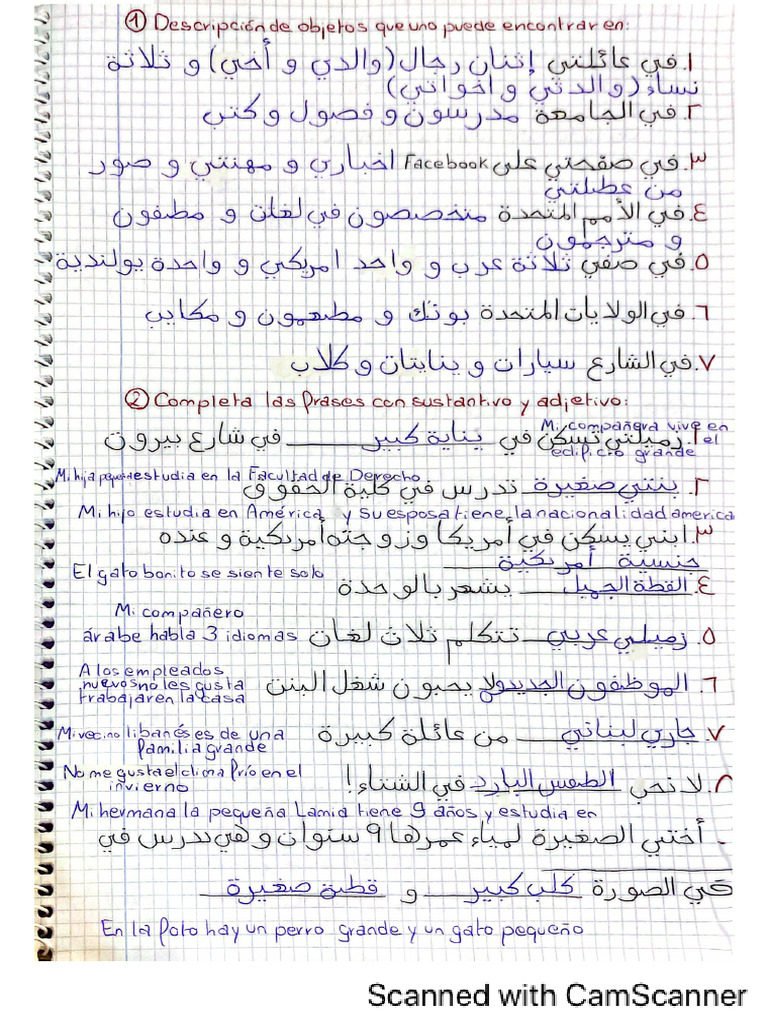 ① Descripción de objetos que uno puede encontrar en:
١. في عائلتي إثنان رجال (والدي و أخي) و ثلاثة
نساء (والدتي و اخواتي)
٢. في الجامعة مدرسون و فصول و كتب
٣. في صفحتي على Facebook اخباري و مهنتي و صور
من عطلتي
٤. في الأمم المتحدة متخصصون في لغات و مطفون
و مترجمون
٥. في صفي ثلاثة عرب و واحد امريكي و واحدة بولندية
٦. في الولايات المتحدة بونك و مطعمون و مكايب
٧. في الشارع سيارات و ينايتان و كلاب
② Completa las frases con sustantivo y adjetivo:
Mi compañera vive en
el
edificio grande
١. زميلتي تسكن في يناية كبير في شارع بيروت
Mi hija pequeña estudia en la Facultad de Derecho
٢. بنتي صغيرة تدرس في كلية الحقوق
Mi hijo estudia en América y su esposa tiene la nacionalidad america
٣. ابني يسكن في أمريكا وزوجته أمريكية و عنده
جنسية أمريكية
El gato bonito se siente solo
٤. القطة الجميل يشعر بالوحدة
Mi compañero
árabe habla 3 idiomas
٥. زميلي عربي تتكلم ثلاث لغات
A los empleados
nuevos no les gusta
trabajar en la casa
٦. الموظفون الجديدو لا يحبون شغل البنت
Mi vecino libanés es de una
familia grande
٧. جاري لبناني من عائلة كبيرة
No me gusta el clima frío en el
invierno
٨. لا نحب الطقس البارد في الشتاء!
Mi hermana la pequeña Lamia tiene 9 años y estudia en
. أختي الصغيرة لمياء عمرها 9 سنوات و هي تدرس في
في الصورة كلب كبير و قطة صغيرة
En la foto hay un perro grande y un gato pequeño
Scanned with CamScanner